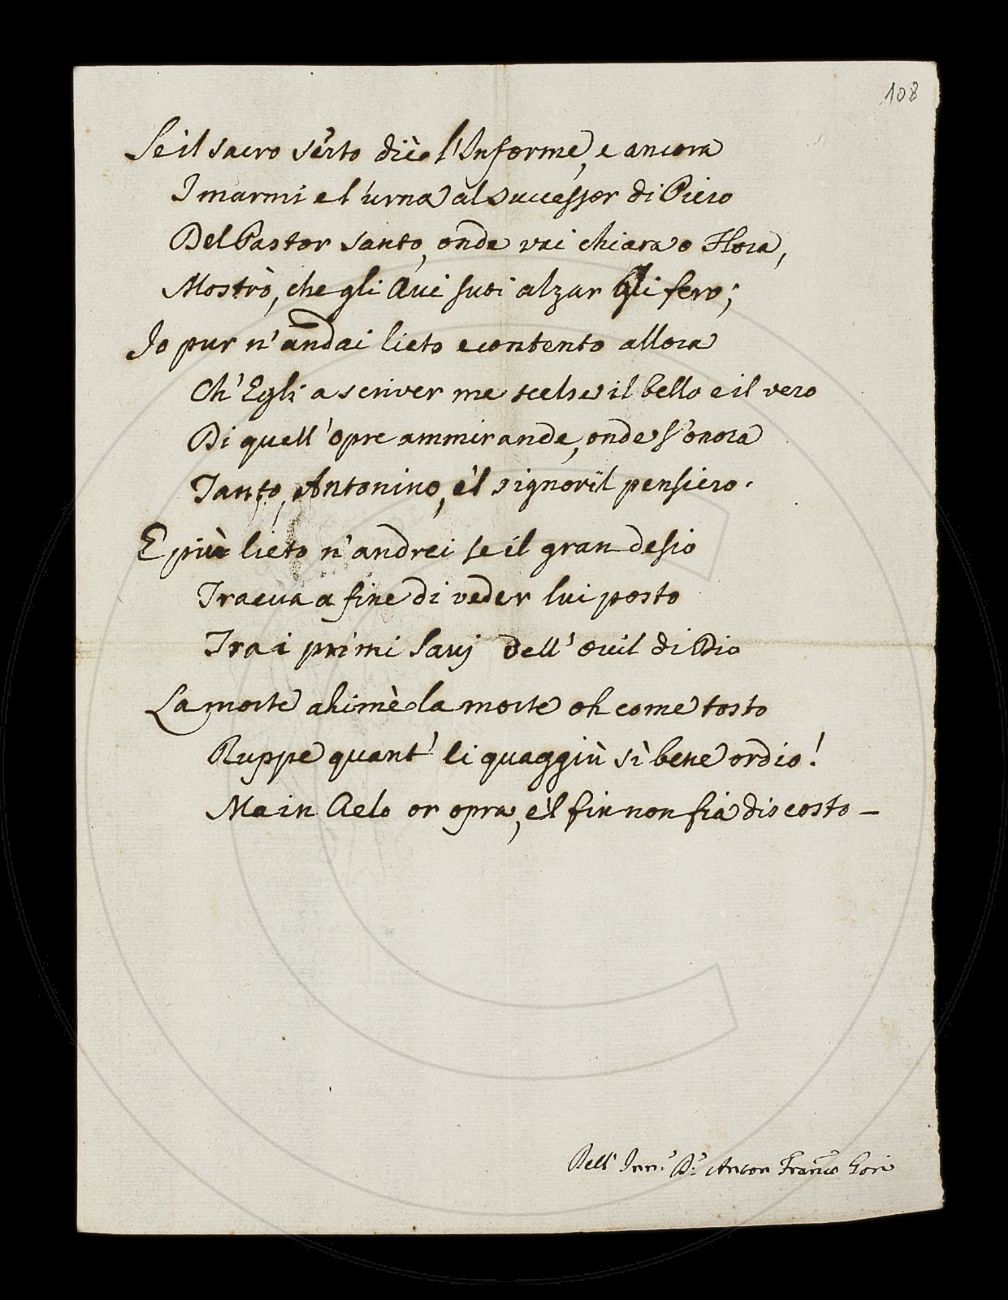 108
Se il sacro serto diè l'Informe, e ancora
I marmi e l'urna al Successor di Piero
Del Pastor santo, onde vai chiara o Flora,
Mostrò, che gli Avi suoi alzar gli fero;
Io pur n'andai lieto e contento allora
Ch'Egli a scriver me scelse il bello e il vero
Di quell'opre ammirande, onde s'onora
Tanto, Antonino, e'l signoril pensiero.
E più lieto n'andrei se il gran desio
Traeva a fine di veder lui posto
Tra i primi Savj dell'ovil di Dio
La morte ahimè la morte oh come tosto
Ruppe quant'ei quaggiù sì bene ordio!
Ma in Cielo or opra, e'l fin non fia discosto —
Dell' D.r Anton Franc.o Gori